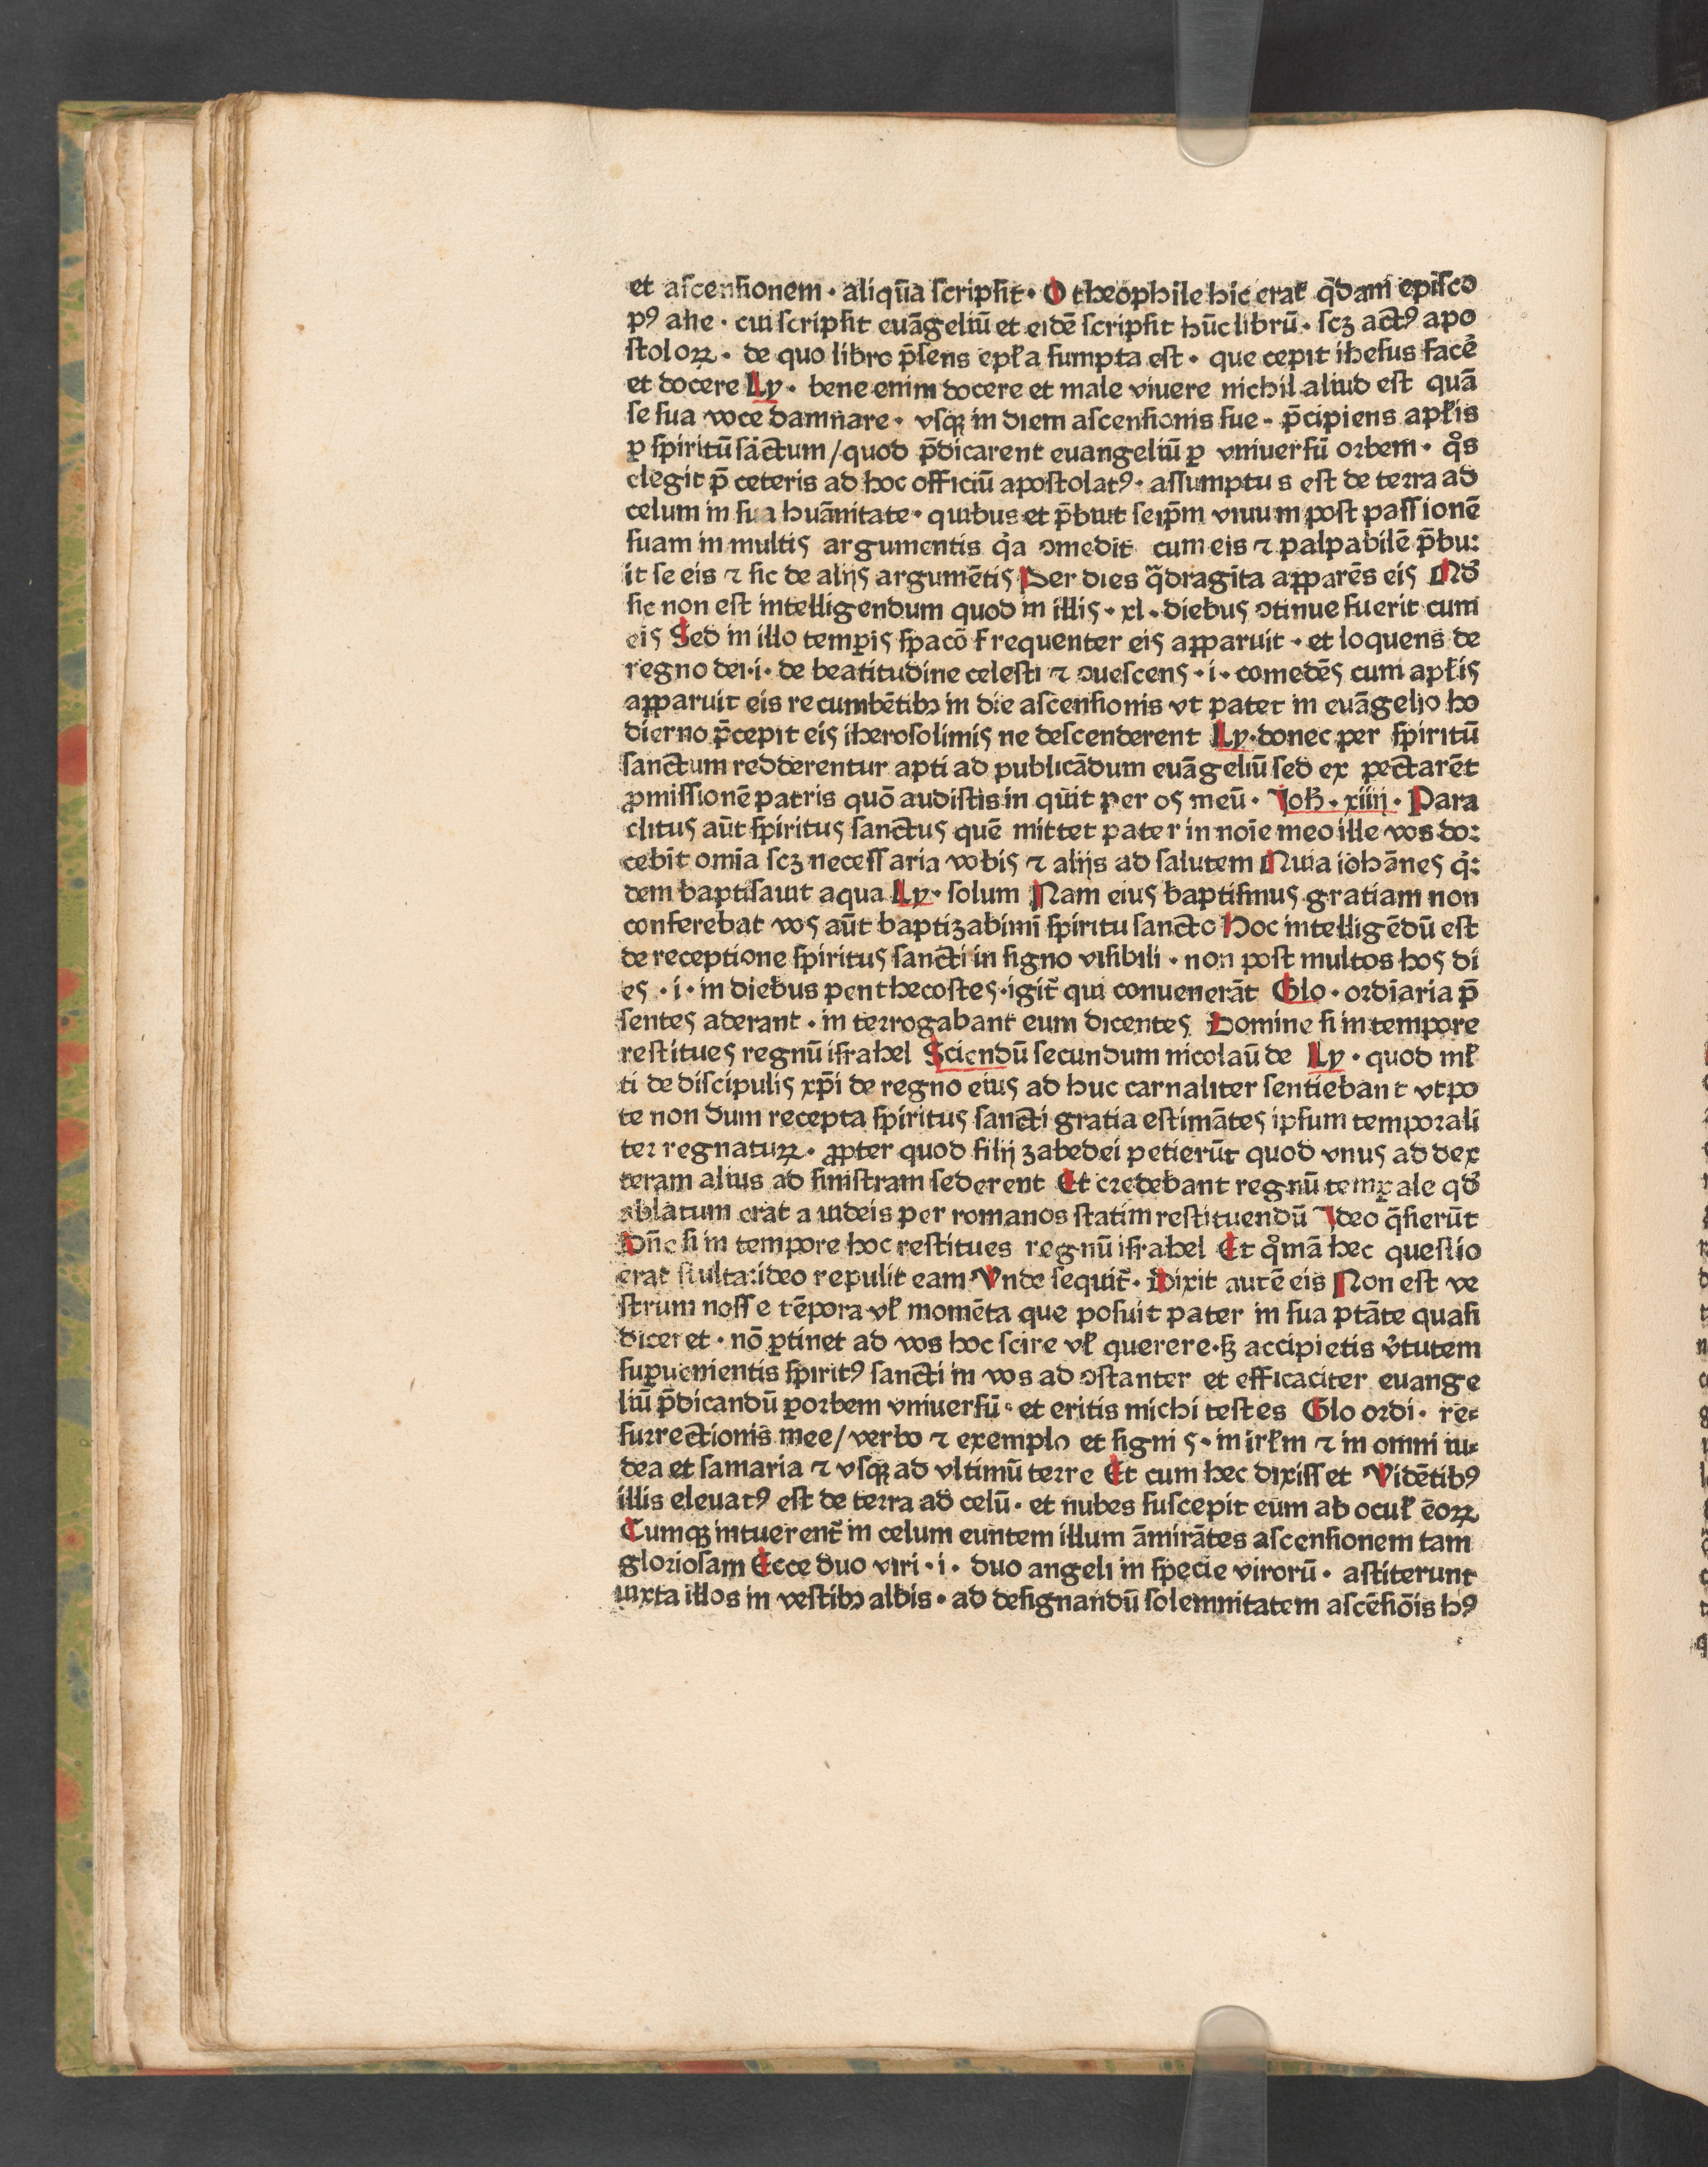 et aſcenſionem · aliqūa ſcripſit · O theophile hic erat q̄dam epiſco
pꝰ ahe · cui ſcripſit euāgeliū et eidē ſcripſit hūc librū · ſcꝫ actꝰ apo
ſtoloꝝ · de quo libro p̄ſens epła ſumpta eſt · que cepit iheſus facē
et docere Ly · bene enim docere et male viuere nichil aliud eſt quā
ſe ſua voce damnare · vſqꝫ in diem aſcenſionis ſue · p̄cipiens apłis
ꝑ ſpiritū ſāctum / quod p̄dicarent euangeliū ꝑ vniuerſū orbem · qͦs
elegit p̄ ceteris ad hoc officiū apoſtolatꝰ · aſſumptus eſt de terra ad
celum in ſua huānitate · quibus et p̄buit ſeip̄m viuum poſt paſſionē
ſuam in multis argumentis qͥa ꝯmedit cum eis ⁊ palpabilē p̄bu:
it ſe eis ⁊ ſic de alijs argumētis Per dies q̄dragīta aꝑparēs eis Nō
ſic non eſt intelligendum quod in illis · xl · diebus ꝯtinue fuerit cum
eis Sed in illo temꝑis ſpacō frequenter eis aꝑparuit · et loquens de
regno dei · i · de beatitudine celeſti ⁊ ꝯueſcens · i · comedēs cum apłis
aꝑparuit eis recumbētibꝫ in die aſcenſionis vt patet in euāgelio ho
dierno p̄cepit eis iheroſolimis ne deſcenderent Ly · donec per ſpiritū
ſanctum redderentur apti ad publicādum euāgeliū ſed expectarēt
ꝓmiſſionē patris quō audiſtis in quit per os meū · Joh̄ · xiiij · Para
clitus aūt ſpiritus ſanctus quē mittet pater in noīe meo ille vos do:
cebit omīa ſcꝫ neceſſaria vobis ⁊ alijs ad ſalutem Quia iohānes qͥ:
dem baptiſauit aqua Ly · ſolum Nam eius baptiſmus gratiam non
conferebat vos aūt baptizabimī ſpiritu ſancto Hoc intelligēdū eſt
de receptione ſpiritus ſancti in ſigno viſibili · non poſt multos hos di
es · i · in diebus penthecoſtes · igit̄ qui conuenerāt Glo · ordīaria p̄
ſentes aderant · interrogabant eum dicentes Domine ſi in tempore
reſtitues regnū iſrahel Sciendū ſecundum nicolaū de Ly · quod mł
ti de diſcipulis xp̄i de regno eius ad huc carnaliter ſentiebant vtpo
te non dum recepta ſpiritus ſancti gratia eſtimātes ipſum temporali
ter regnatuꝝ · ꝓpter quod filij zabedei petierūt quod vnus ad dex
teram alius ad ſiniſtram ſederent Et credebant regnū temꝑale qđ
ablatum erat a iudeis per romanos ſtatim reſtituendū Ideo q̄ſierūt
Dn̄e ſi in tempore hoc reſtitues regnū iſrahel Et qͦmā hec queſtio
erat ſtulta: ideo repulit eam · Vnde ſequit̄ · Dixit autē eis Non eſt ve
ſtrum noſſe tēpora vł momēta que poſuit pater in ſua ptāte quaſi
diceret · nō ꝑtinet ad vos hoc ſcire vł querere · ſꝫ accipietis v̓tutem
ſuꝑuenientis ſpiritꝰ ſancti in vos ad ꝯſtanter et efficaciter euange
liū p̄dicandū ꝑ orbem vniuerſū · et eritis michi teſtes Glo ordi · re⸗
ſurrectionis mee / verbo ⁊ exemplo et ſignis · in irłm ⁊ in omni iu⸗
dea et ſamaria ⁊ vſqꝫ ad vltimū terre Et cum hec dixiſſet Vidētibꝰ
illis eleuatꝰ eſt de terra ad celū · et nubes ſuſcepit eum ab ocuł eoꝝ
Cumqꝫ intuerent̄ in celum euntem illum āmirātes aſcenſionem tam
glorioſam Ecce duo viri · i · duo angeli in ſpecie virorū · aſtiterunt
iuxta illos in veſtibꝫ albis · ad deſignandū ſolemnitatem aſcēſiōis hꝰ